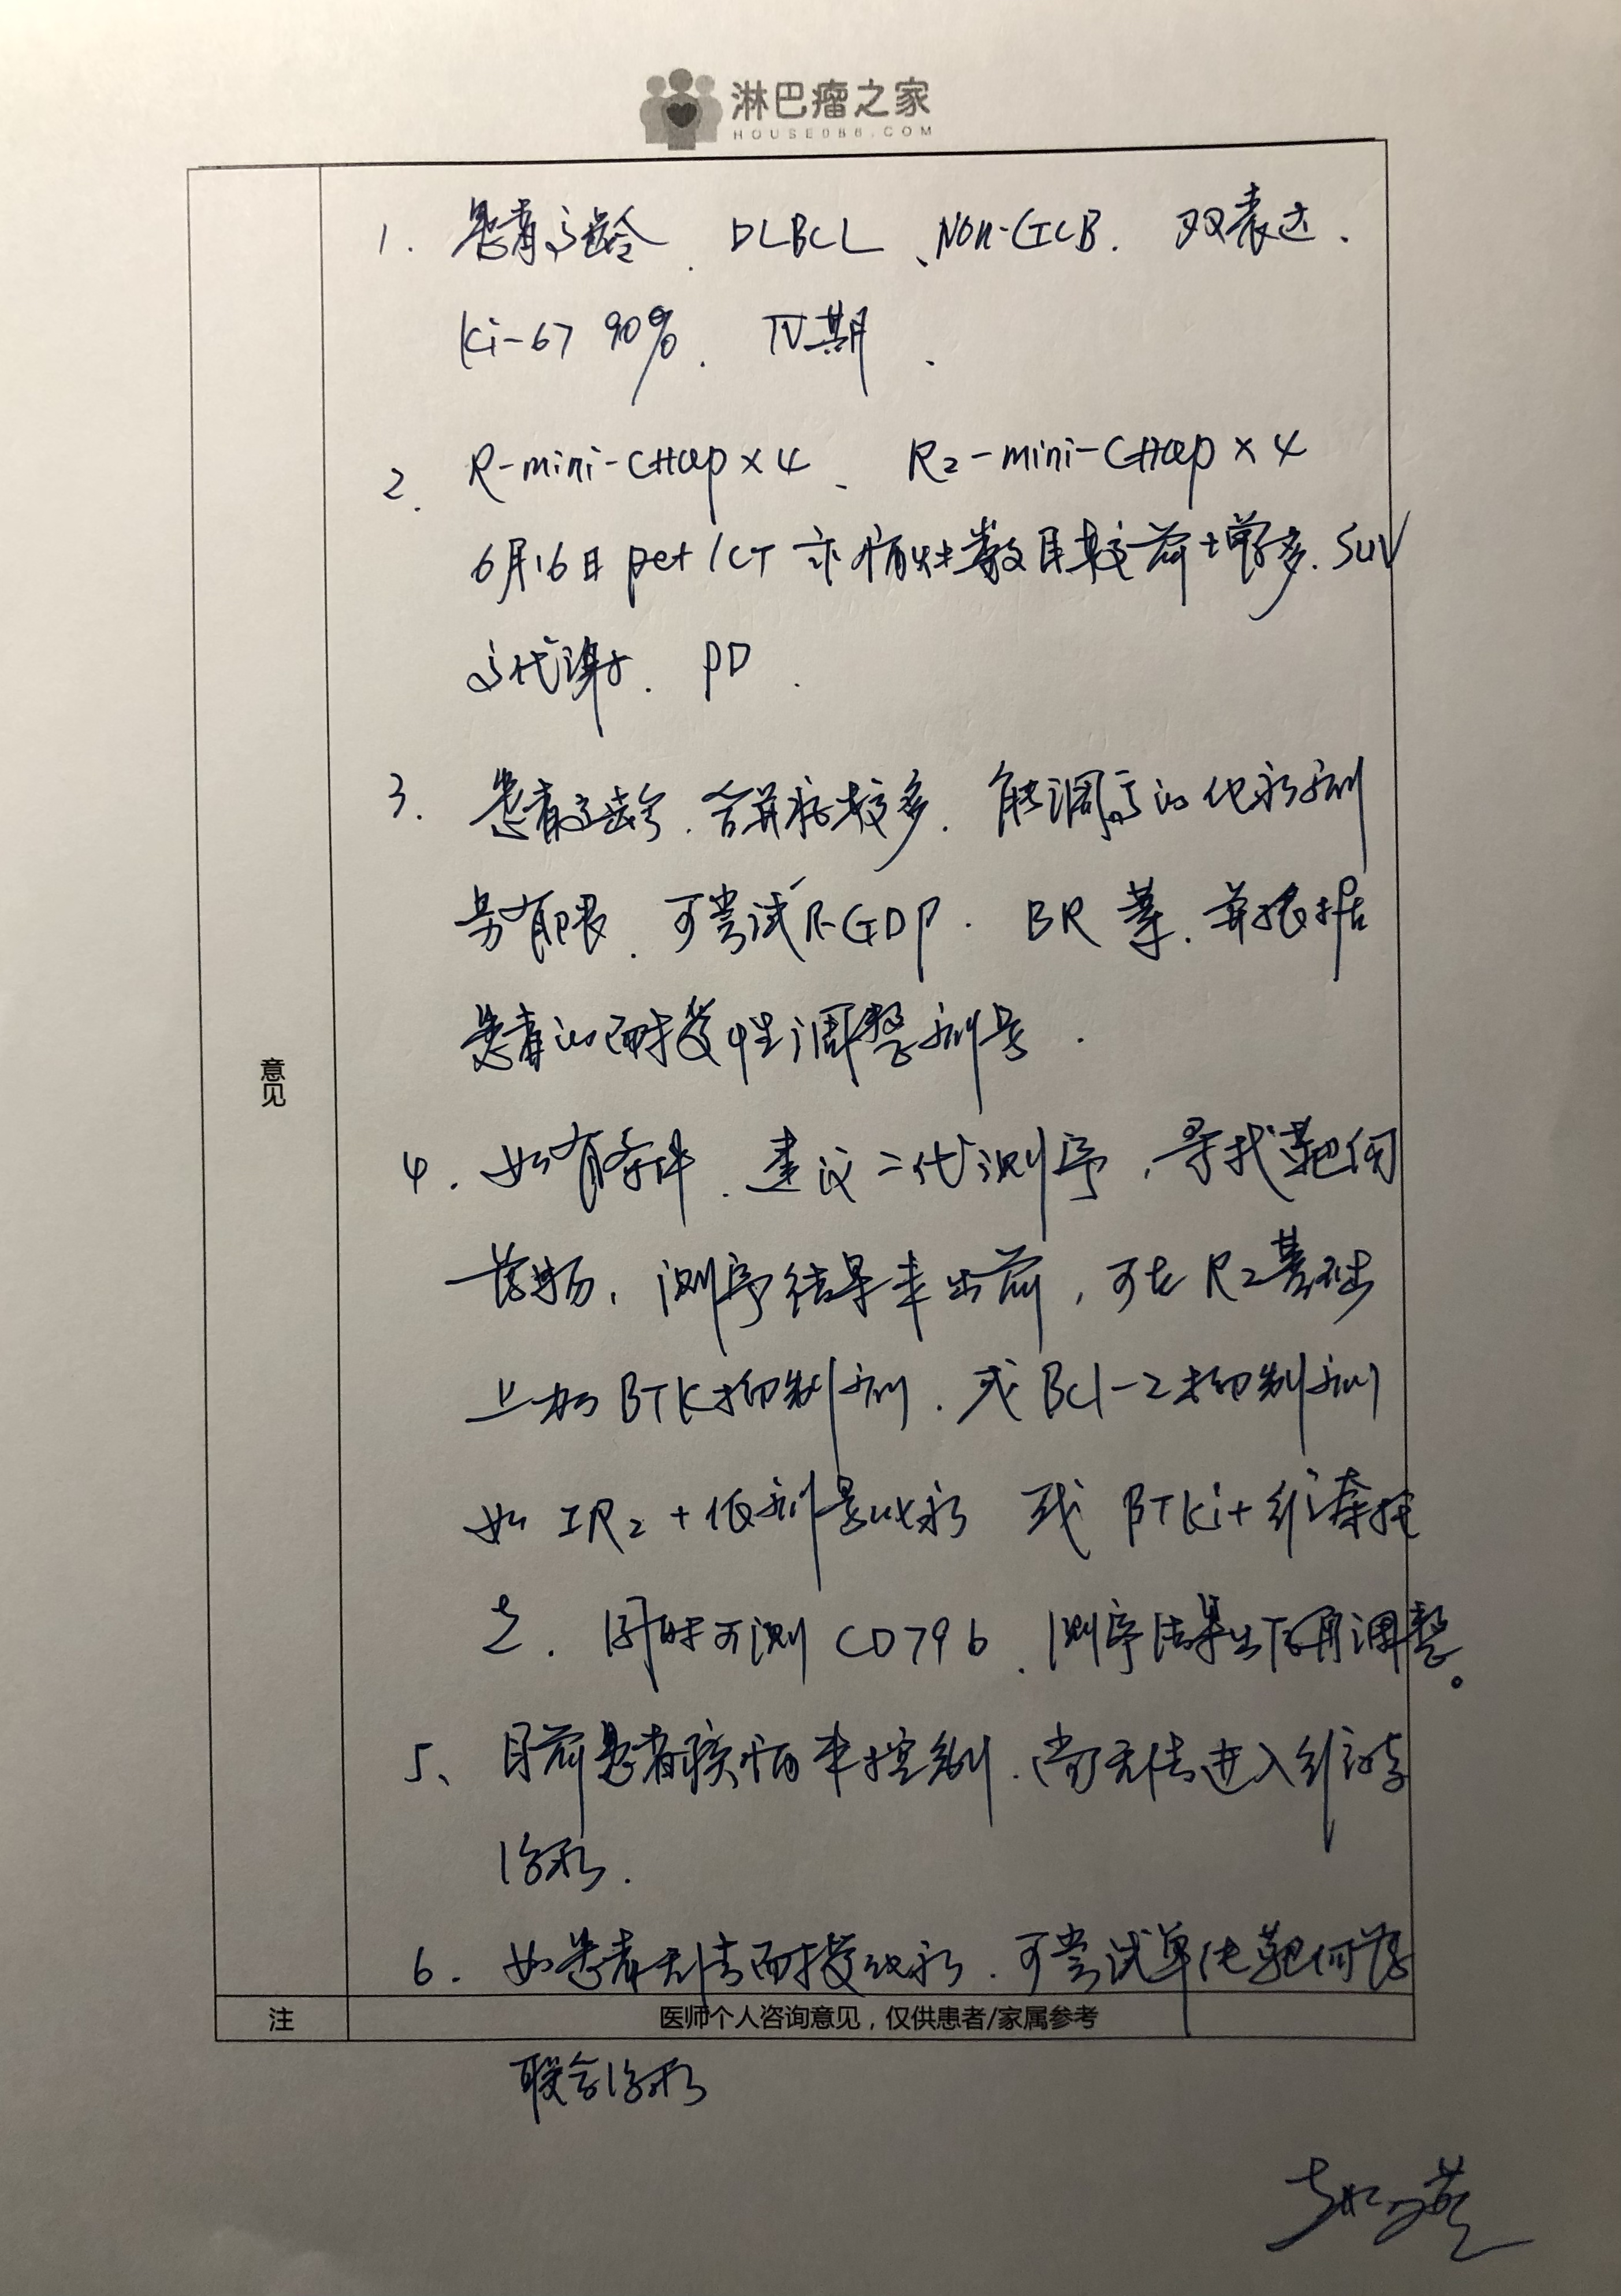 淋巴瘤之家
HOUSE086.COM
意见
1. 患者高龄、DLBCL、Non-GCB. 双表达.
Ki-67 90%. IV期.
2. R-mini-CHOP×4、R2-mini-CHOP×4
6月16日 pet/CT 示病灶数目较前增多. SUV
高代谢. PD.
3. 患者高龄. 合并症较多. 能调高的化疗剂
量有限. 可尝试R-GDP. BR 等. 并根据
患者的耐受性调整剂量.
4. 如有条件. 建议二代测序, 寻找靶向
药物, 测序结果未出前, 可在R2基础
上加BTK抑制剂. 或Bcl-2抑制剂
如 IR2+低剂量化疗 或 BTKi+维奈托
克. 同时可测 CD79b. 测序结果出后再调整。
5、目前患者疾病未控制. 尚无法进入维持
治疗.
6. 如患者无法耐受化疗. 可尝试单纯靶向药
注 医师个人咨询意见，仅供患者/家属参考
联合治疗